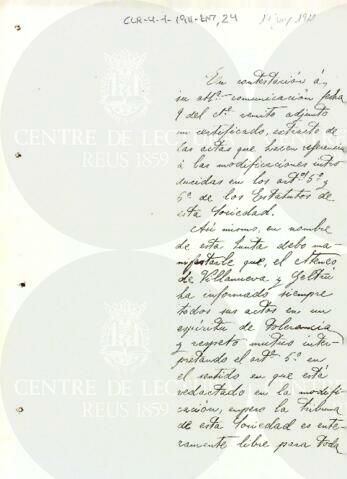 CLR-4-1-1911-ENT, 24
14 juny 1911
En contestación á
su att.ª comunicación fecha
9 del cte. remito adjunto
un certificado, extracto de
las actas que hacen referencia
á las modificaciones intro-
ducidas en los artos 5º y
5º de los Estatutos de
esta Sociedad.
Así mismo, en nombre
de esta Junta debo ma-
nifestarle que, el Ateneo
de Villanueva y Geltrú
ha informado siempre
todos sus actos en un
espíritu de tolerancia
y respeto mutuo inter-
pretando el artº 5º en
el sentido en que está
redactado en la modifi-
cación, empero la tribuna
de esta Sociedad es ente-
ramente libre para toda
CENTRE DE LECTURA
REUS 1859
CENTRE DE LECTURA
REUS 1859